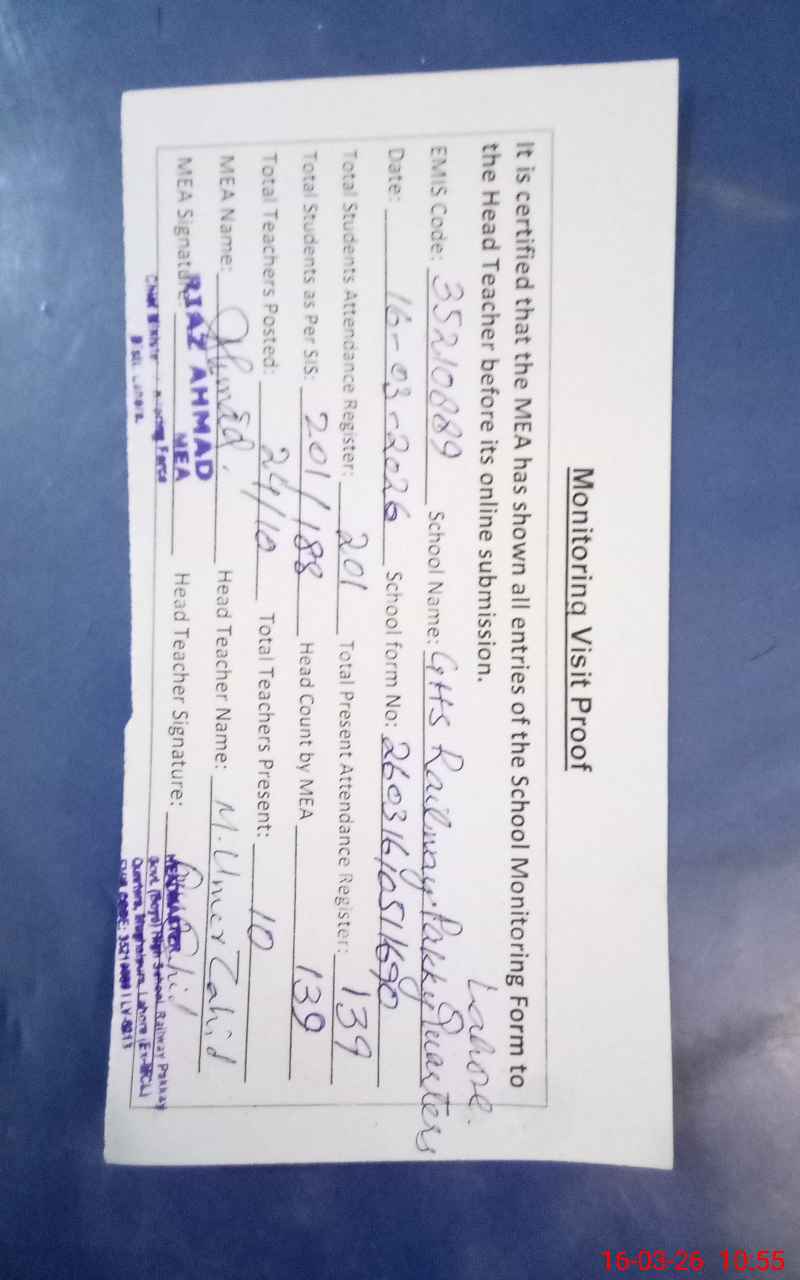 Monitoring Visit Proof
It is certified that the MEA has shown all entries of the School Monitoring Form to
the Head Teacher before its online submission.
Lahore.
EMIS Code: 35210889 School Name: GHS Railway Pakky Quarters
Date: 16-03-2026 School form No:
Total Students Attendance Register: 201 Total Present Attendance Register: 139
Total Students as Per SIS: 201/188 Head Count by MEA 139
Total Teachers Posted: 24/10 Total Teachers Present: 10
MEA Name: Head Teacher Name: M. Umer Zahid
MEA Signature: Head Teacher Signature:
RIAZ AHMAD
MEA
HEADMASTER
Govt. (Boys) High School Railway Pakkay
Quarters, Mughalpura, Lahore
16-03-26 10:55